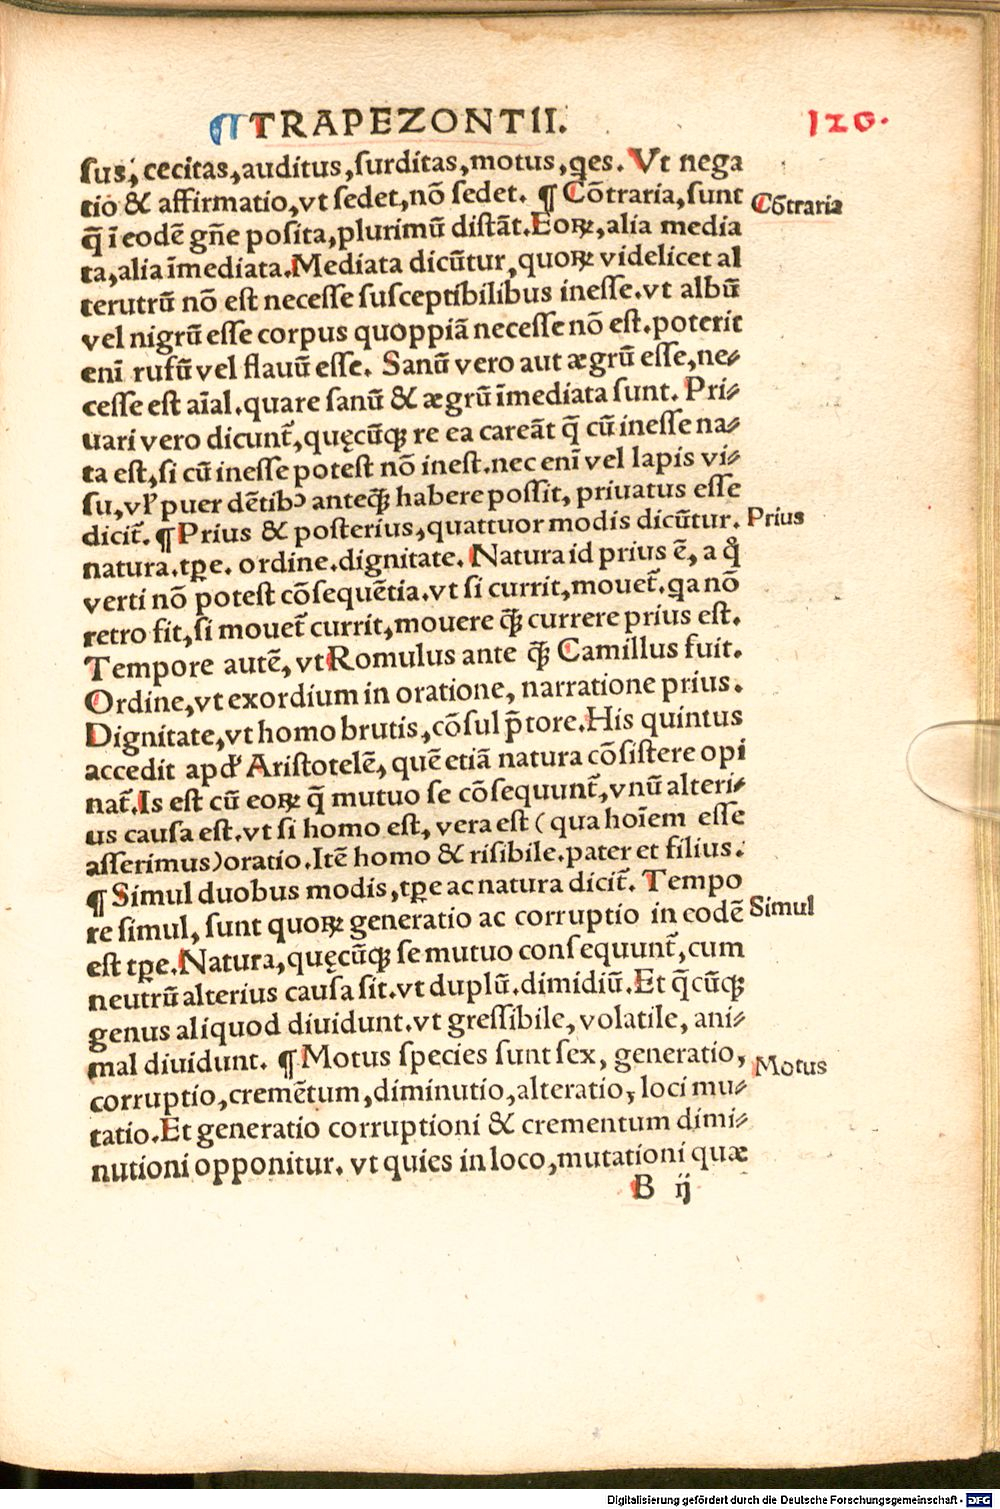 ¶TRAPEZONTII. 120.
sus, cecitas, auditus, surditas, motus, qes. Vt nega
tio & affirmatio, vt sedet, nõ sedet. ¶ Cõtraria, sunt
Cõtraria
q̃ ĩ eodẽ gñe posita, plurimũ distãt. Eoꝝ, alia media
ta, alia ĩmediata. Mediata dicũtur, quoꝝ videlicet al
terutrũ nõ est necesse susceptibilibus inesse. vt albũ
vel nigrũ esse corpus quoppiã necesse nõ est. poterit
enĩ rufũ vel flauũ esse. Sanũ vero aut ægrũ esse, ne⸗
cesse est aĩal. quare sanũ & ægrũ ĩmediata sunt. Pri⸗
uari vero dicunt̃, quęcũqꝫ re ea careãt q̃ cũ inesse na⸗
ta est, si cũ inesse potest nõ inest. nec enĩ vel lapis vi⸗
su, vl̕ puer dẽtibꝰ anteqꝫ̃ habere possit, priuatus esse
dicit̃. ¶ Prius & posterius, quattuor modis dicũtur.
Prius
natura. tꝑe. ordine. dignitate. Natura id prius ẽ, a qͦ
verti nõ potest cõsequẽtia. vt si currit, mouet̃. qa nõ
retro fit, si mouet̃ currit, mouere qꝫ̃ currere prius est.
Tempore autẽ, vt Romulus ante qꝫ̃ Camillus fuit.
Ordine, vt exordium in oratione, narratione prius.
Dignitate, vt homo brutis, cõsul p̃tore. His quintus
accedit apd̕ Aristotelẽ, quẽ etiã natura cõsistere opi
nat̃. Is est cũ eoꝝ q̃ mutuo se cõsequunt̃, vnũ alteri⸗
us causa est. vt si homo est, vera est ( qua hoĩem esse
asserimus) oratio. Itẽ homo & risibile. pater et filius.
¶ Simul duobus modis, tꝑe ac natura dicit̃. Tempo
re simul, sunt quoꝝ generatio ac corruptio in eodẽ
Simul
est tꝑe. Natura, quęcũqꝫ se mutuo consequunt̃, cum
neutrũ alterius causa sit. vt duplũ. dimidiũ. Et q̃cũqꝫ
genus aliquod diuidunt. vt gressibile, volatile, ani⸗
mal diuidunt. ¶ Motus species sunt sex, generatio,
Motus
corruptio, cremẽtum, diminutio, alteratio, loci mu⸗
tatio. Et generatio corruptioni & crementum dimi⸗
nutioni opponitur. vt quies in loco, mutationi quæ
B ij
Digitalisierung gefördert durch die Deutsche Forschungsgemeinschaft - DFG